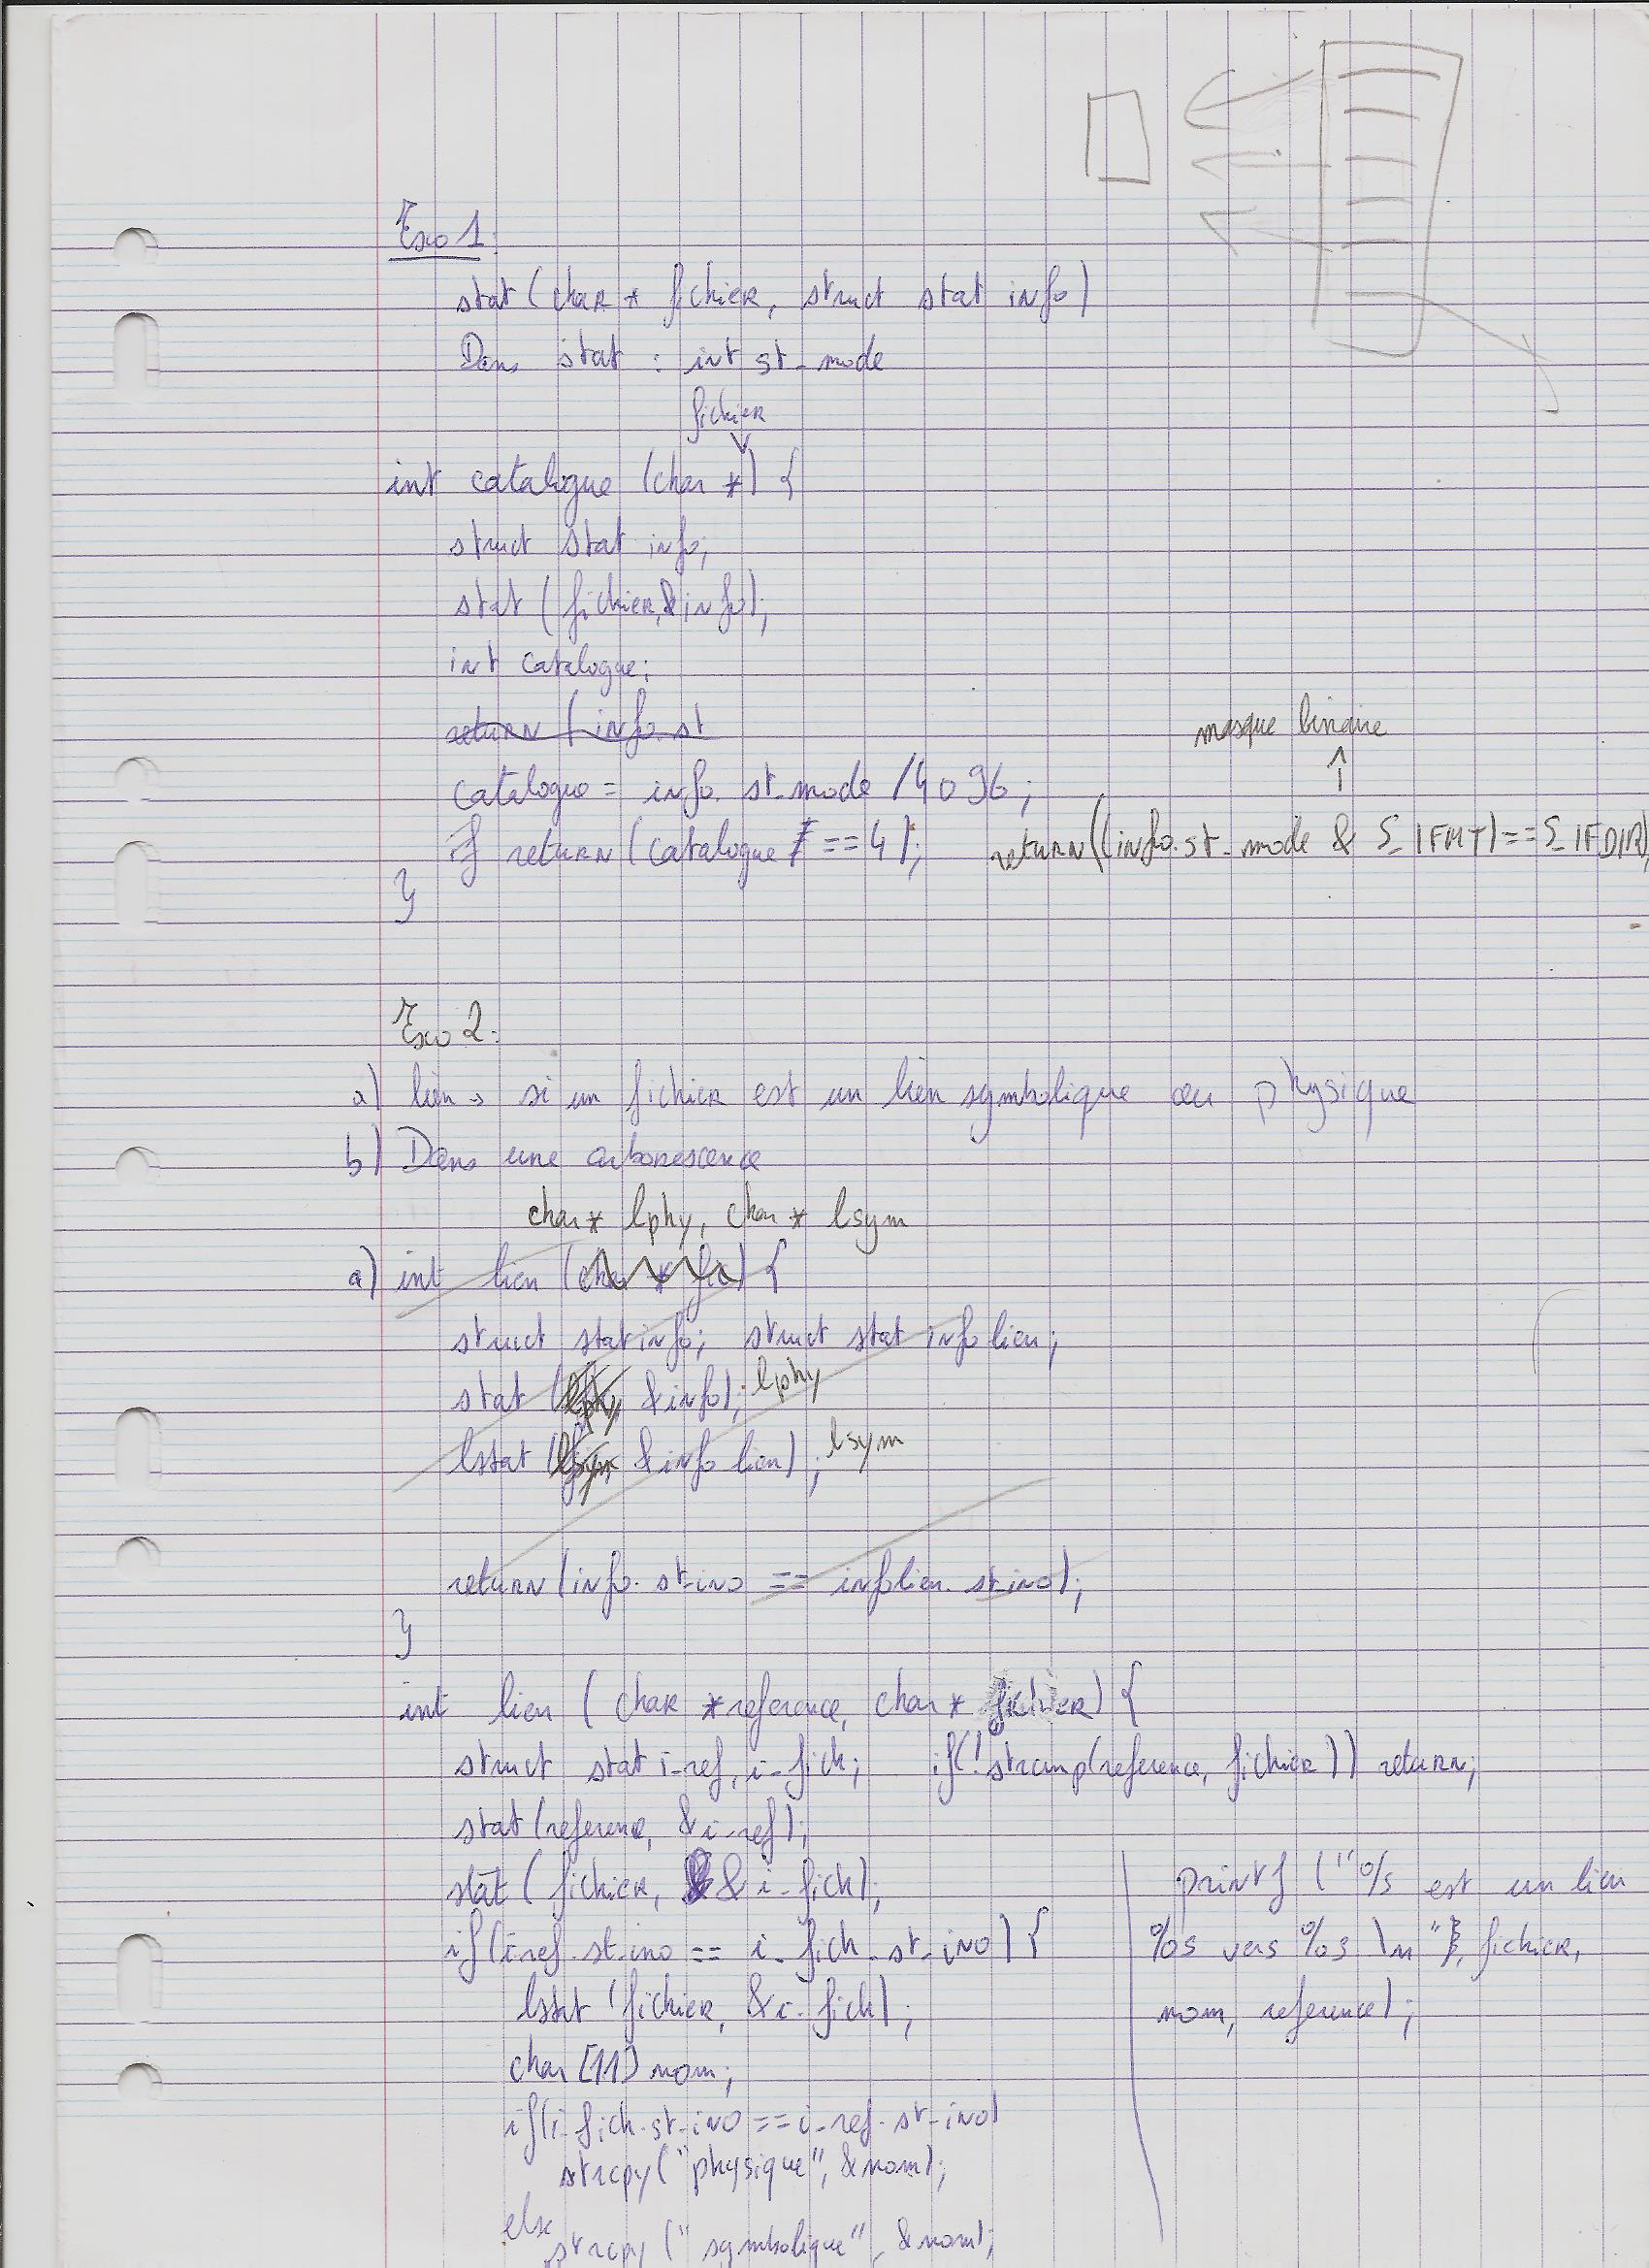 Exo 1:
stat (char * fichier, struct stat info)
Dans stat : int st_mode
fichier
int catalogue (char *) {
struct stat info;
stat (fichier, & info);
int catalogue;
return (info.st
catalogue = info.st_mode / 4096;
masque binaire
if return (catalogue == 4);
return((info.st_mode & S_IFMT) == S_IFDIR)
}
Exo 2:
a) lien → si un fichier est un lien symbolique ou physique
b) Dans une arborescence
char* lphy, char* lsym
a) int lien (char * fic) {
struct stat info; struct stat infolien;
stat ( &info); lphy
lstat ( &infolien); lsym
return (info.st_ino == infolien.st_ino);
}
int lien (char *reference, char* fichier) {
struct stat i_ref, i_fich; if(!strcmp(reference, fichier)) return;
stat (reference, &i_ref);
stat (fichier, & i_fich);
if (i_ref.st_ino == i_fich.st_ino) {
lstat (fichier, &i_fich);
char [11] nom;
if(i_fich.st_ino == i_ref.st_ino)
strcpy ("physique", &nom);
else
strcpy ("symbolique", &nom);
printf ("%s est un lien
%s vers %s \n", fichier,
nom, reference);